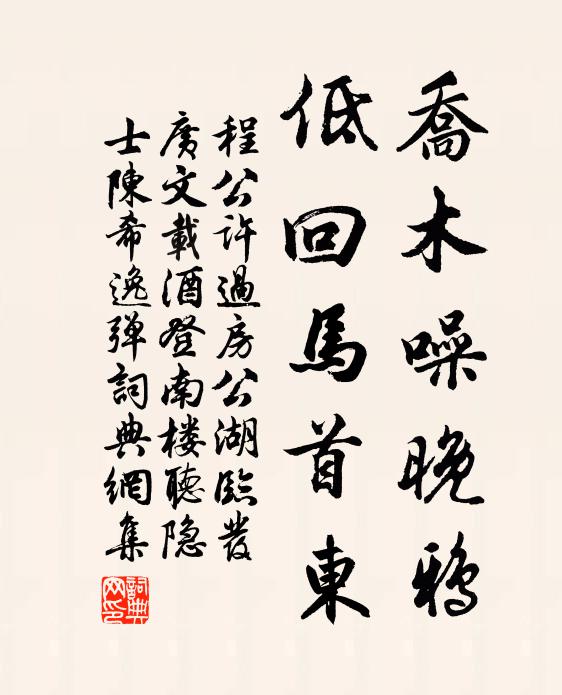 喬木噪晚鴉
低回馬首東
程公許過房公湖臨發
廣文載酒登南楼聽隐
士陳希逸弹詞典網集
詞典网印